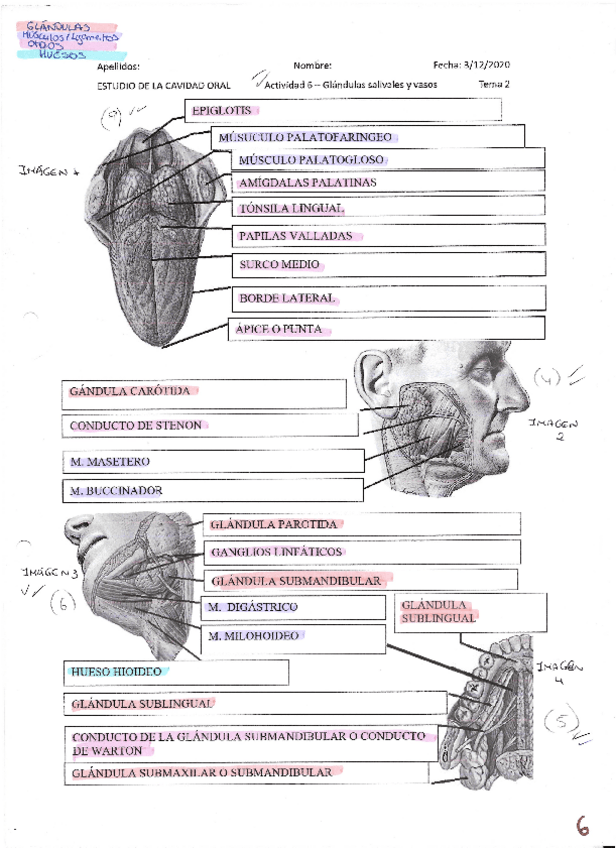 GLÁNDULAS
MÚSCULOS/ligamentos
OTROS
HUESOS
Apellidos: Nombre: Fecha: 3/12/2020
ESTUDIO DE LA CAVIDAD ORAL Actividad 6 – Glándulas salivales y vasos Tema 2
(9)
IMÁGEN 1
EPIGLOTIS
MÚSUCULO PALATOFARINGEO
MÚSCULO PALATOGLOSO
AMÍGDALAS PALATINAS
TÓNSILA LINGUAL
PAPILAS VALLADAS
SURCO MEDIO
BORDE LATERAL
ÁPICE O PUNTA
(4)
IMAGEN
2
GÁNDULA CARÓTIDA
CONDUCTO DE STENON
M. MASETERO
M. BUCCINADOR
IMÁGEN 3
(6)
GLÁNDULA PAROTIDA
GANGLIOS LINFÁTICOS
GLÁNDULA SUBMANDIBULAR
M. DIGÁSTRICO
M. MILOHOIDEO
GLÁNDULA
SUBLINGUAL
IMAGEN
4
(5)
HUESO HIOIDEO
GLÁNDULA SUBLINGUAL
CONDUCTO DE LA GLÁNDULA SUBMANDIBULAR O CONDUCTO
DE WARTON
GLÁNDULA SUBMAXILAR O SUBMANDIBULAR
6